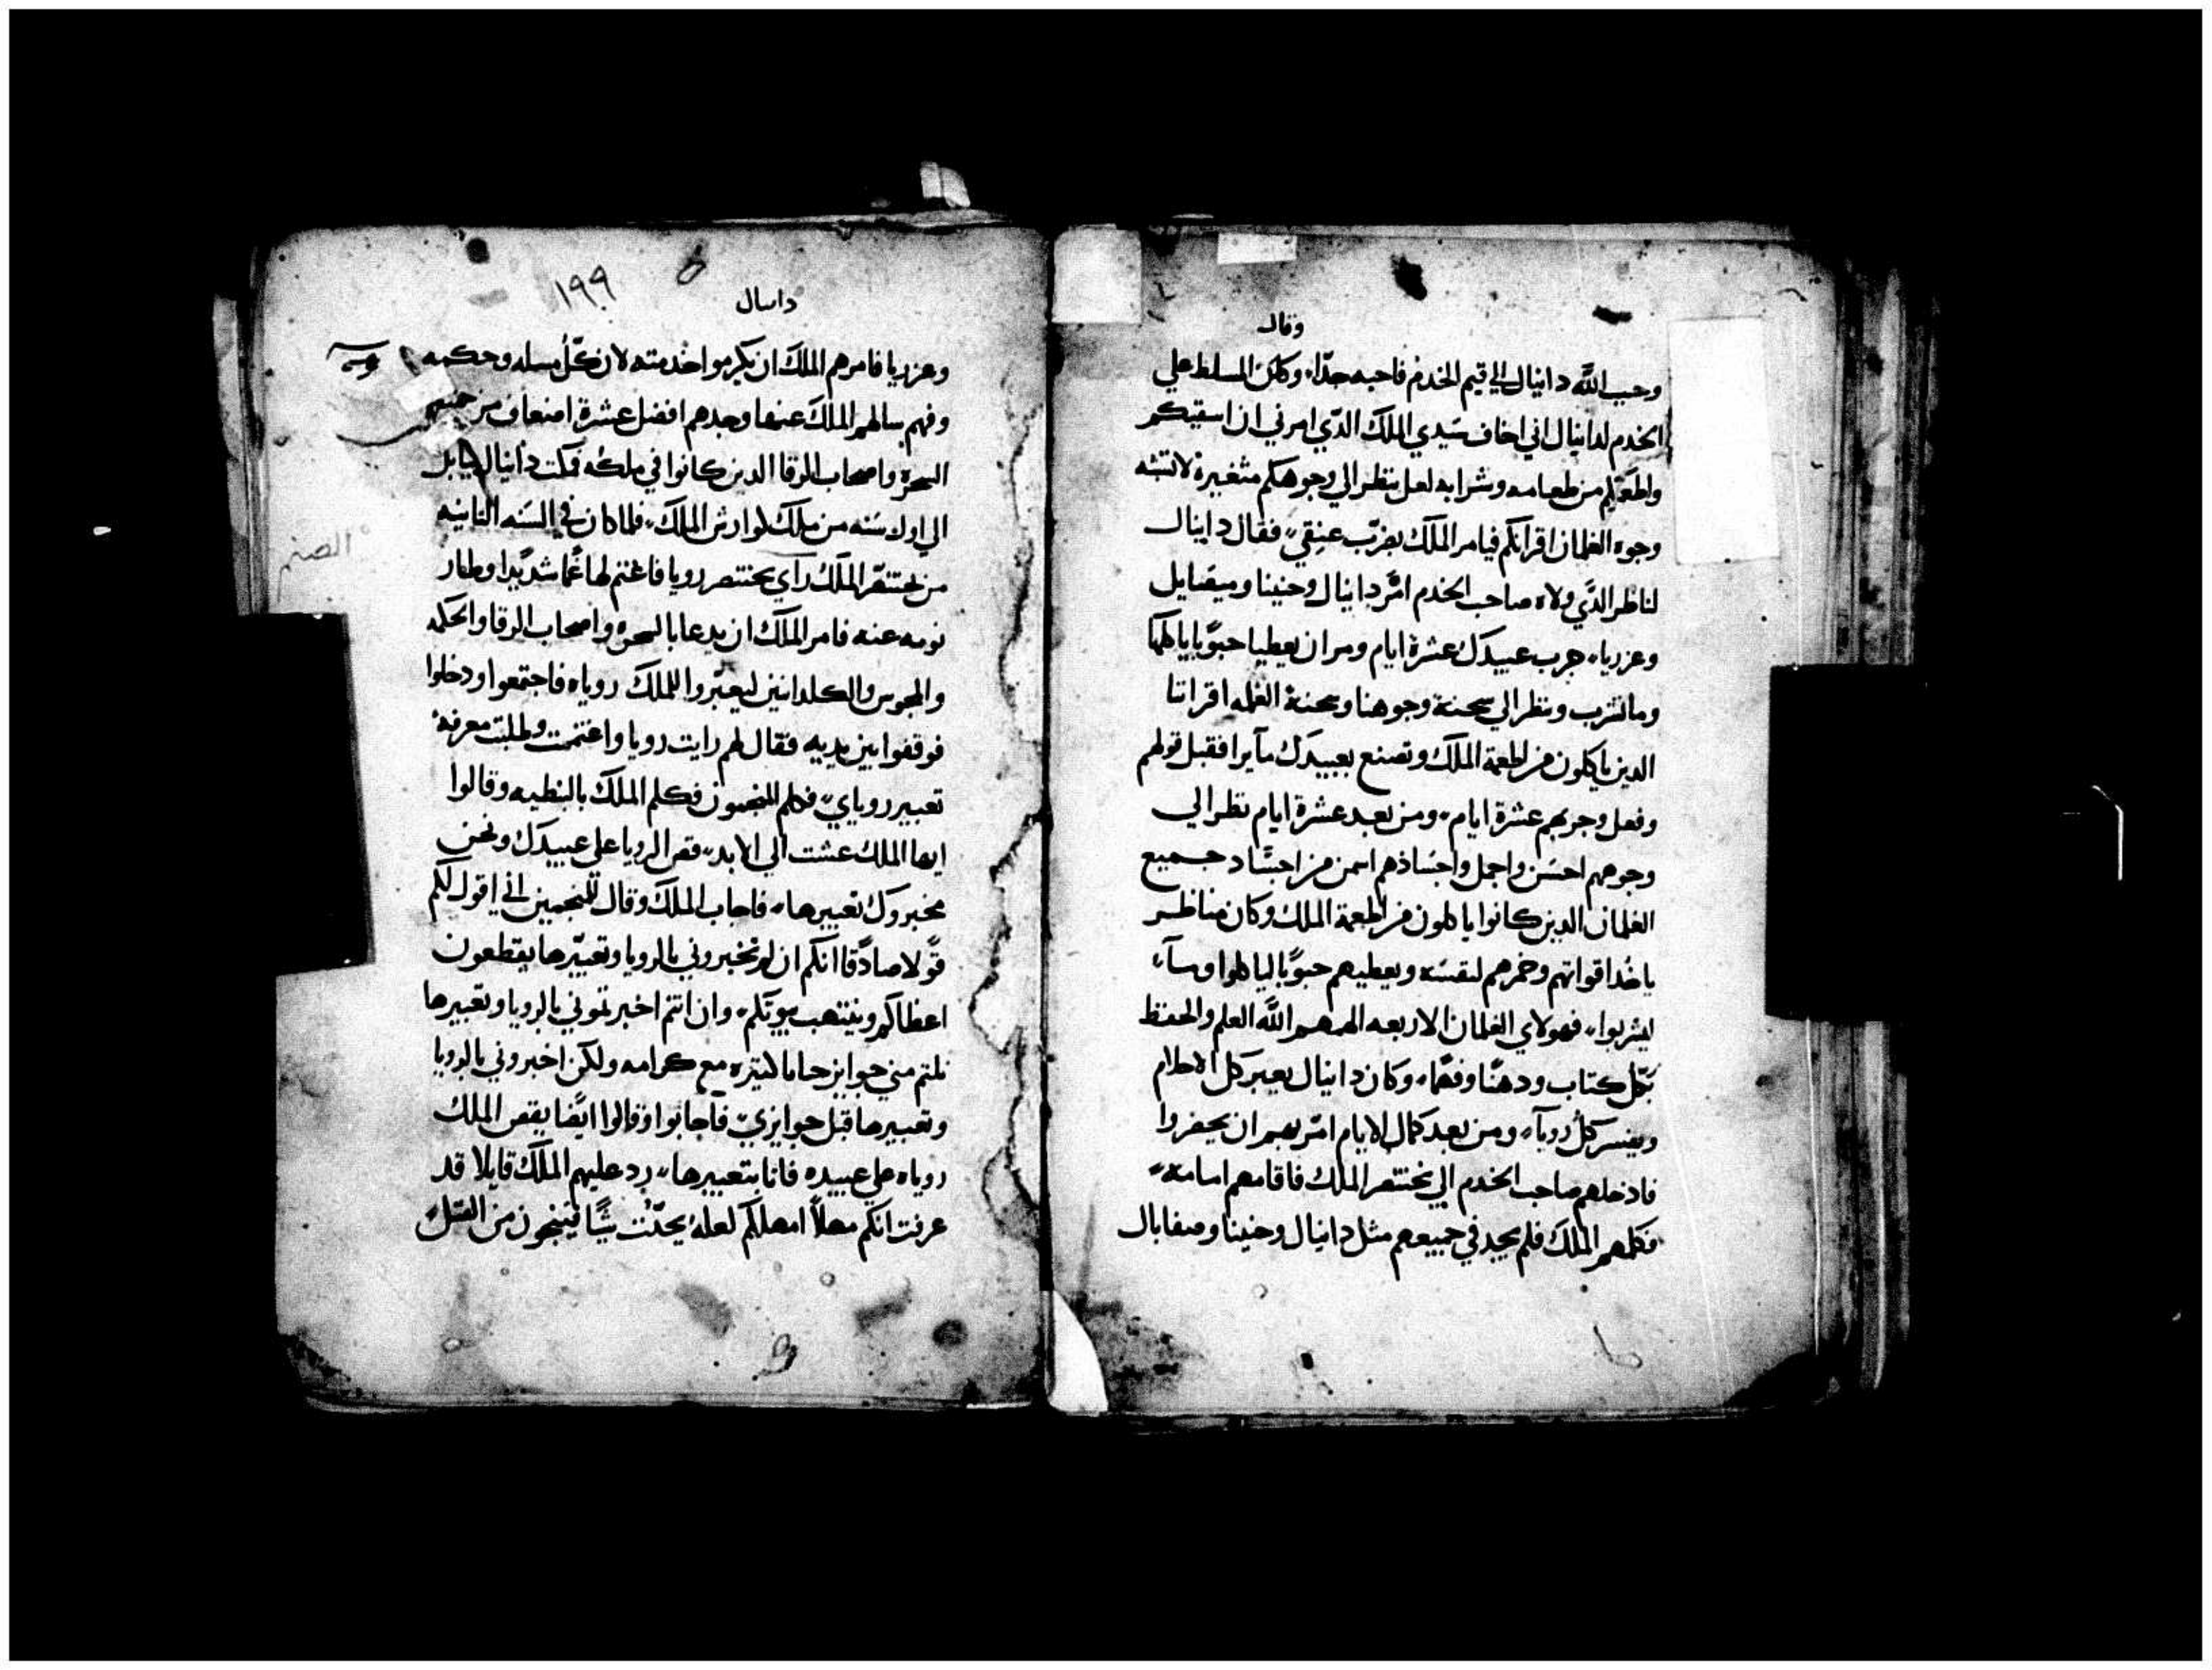 وقال
وحبب الله دانيال الي قيم الخدم فاحبه جدًا، وكان المسلط علي
الخدم لدانيال اني اخاف سَيدي الملك الدّي امرني ان اسقيكم
واطعمكم من طعامه وشرابه لعل ينظر الي وجوهكم متغيرة لا تشبه
وجوه الغلمان اقرانكم فيامر الملك بضرب عنقي، فقال دانيال
لناظر الدّي ولاه صاحب الخدم امر دانيال وحنينا وميصايل
وعزريا، جرب عبيدك عشرة ايام ومر ان يعطيا حبوبًا ياكلها
وما نشرب وينظر الي سحنة وجوهنا وسحنة الغلمه اقراننا
الدين ياكلون من اطعمة الملك وتصنع بعبيدك ما يرا فقبل قولهم
وفعل وجربهم عشرة ايام، ومن بعد عشرة ايام نظر الي
وجوههم احسَن واجمل واجسَادهم اسمن من اجسَاد جميع
الغلمان الدين كانوا ياكلون من اطعمة الملك وكان مناظر
ياخد اقواتهم وخمرهم لنفسَه ويعطيهم حبوبًا لياكلوا وماآ،
ليشربوا، فهولاي الغلمان الاربعه الهمهم الله العلم والحفظ
بكل كتاب ودهنًا وفهمًا، وكان دانيال يعبر كل الاحلام
ويفسر كل رويآ، ومن بعد كمال الايام امر بهم ان يحضروا
فادخلهم صاحب الخدم الي بختنصر الملك فاقامهم امامه
فكلمهم الملك فلم يجد في جميعهم مثل دانيال وحنينا وصفايال
١٩٩
دانيال
وعزريا فامرهم الملك ان يكرموا خدمته لان كل مسله وحكمه
وفهم سالهم الملك عنها وجدهم افضل عشرة امنعاف من جميع
السحرة واصحاب الرقا الدين كانوا في ملكه فمكت دانيال ببابل
الي اول سَنه من ملك لوارش الملك، فلما كان في السَنه التانيه
من بختنصر الملك راي بختنصر رويا فاغتم لها غمًا شديدًا وطار
الصنم
نومه عنه فامر الملك ان يدعا بالسحرة واصحاب الرقا والحكمه
والمجوس والكلدانيين ليعبّروا للملك روياه فاجتمعوا ودخلوا
فوقفوا بين يديه فقال لهم رايت رويا واغتممت وطلبت معرفة
تعبير روياي، فكلم المنجمون فكلم الملك بالنبطيه وقالوا
ايها الملك عشت الي الابد، قص الرويا علي عبيدك ونحن
مخبروك تعبيرها، فاجاب الملك وقال للمنجمين اني اقول لكم
قولا صادقًا انكم ان لم تخبروني بالرويا وتعبيرها يقطعون
اعظاكم وينتهب بيوتكم، وان انتم اخبرتموني بالرويا وتعبيرها
نلتم مني جوايز حبابا كتيره مع كرامه ولكن اخبروني بالرويا
وتعبيرها قبل جوايزي، فاجابوا وقالوا ايضًا يقص الملك
روياه علي عبيده فانا بتعبيرها، رد عليهم الملك قايلا قد
عرفت انكم مهلاً امهلكم لعله يحدّت شيًا فتنجون من القتل